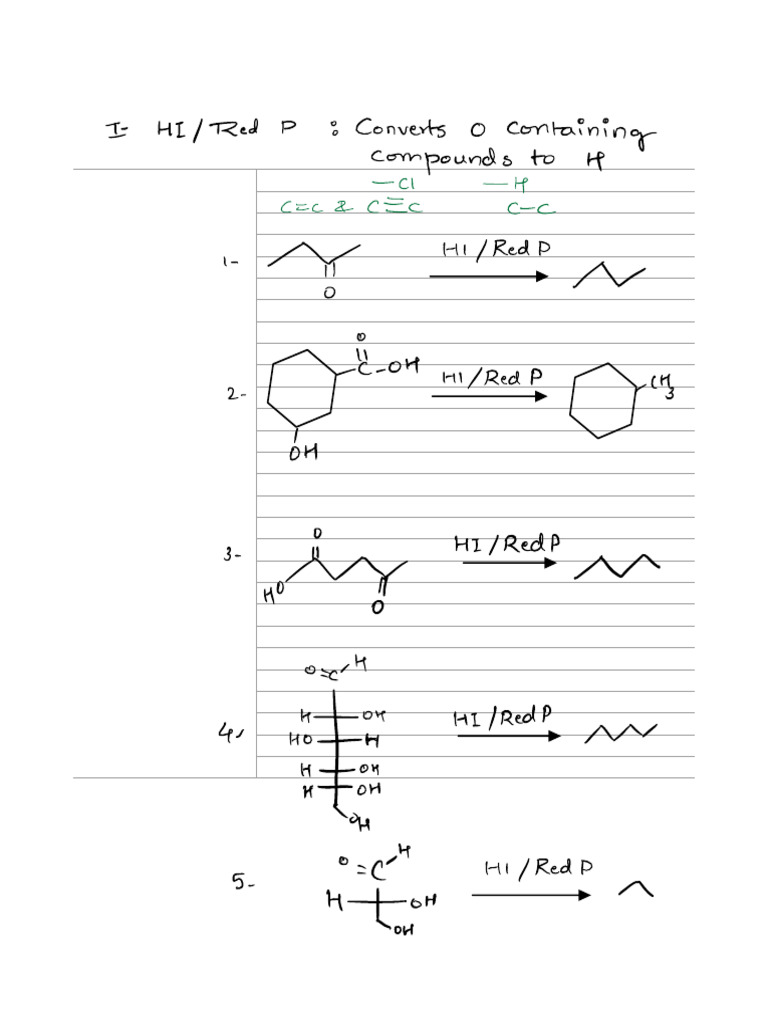 I- HI/Red P : Converts O containing
compounds to H
-Cl -H
C=C & C≡C C-C
1- HI/Red P
O
O
C-OH HI/Red P CH3
2-
OH
O
3- HI/Red P
HO
O
O=C H
H OH HI/Red P
4, HO H
H OH
H OH
OH
O=C H HI/Red P
5-
H OH
OH